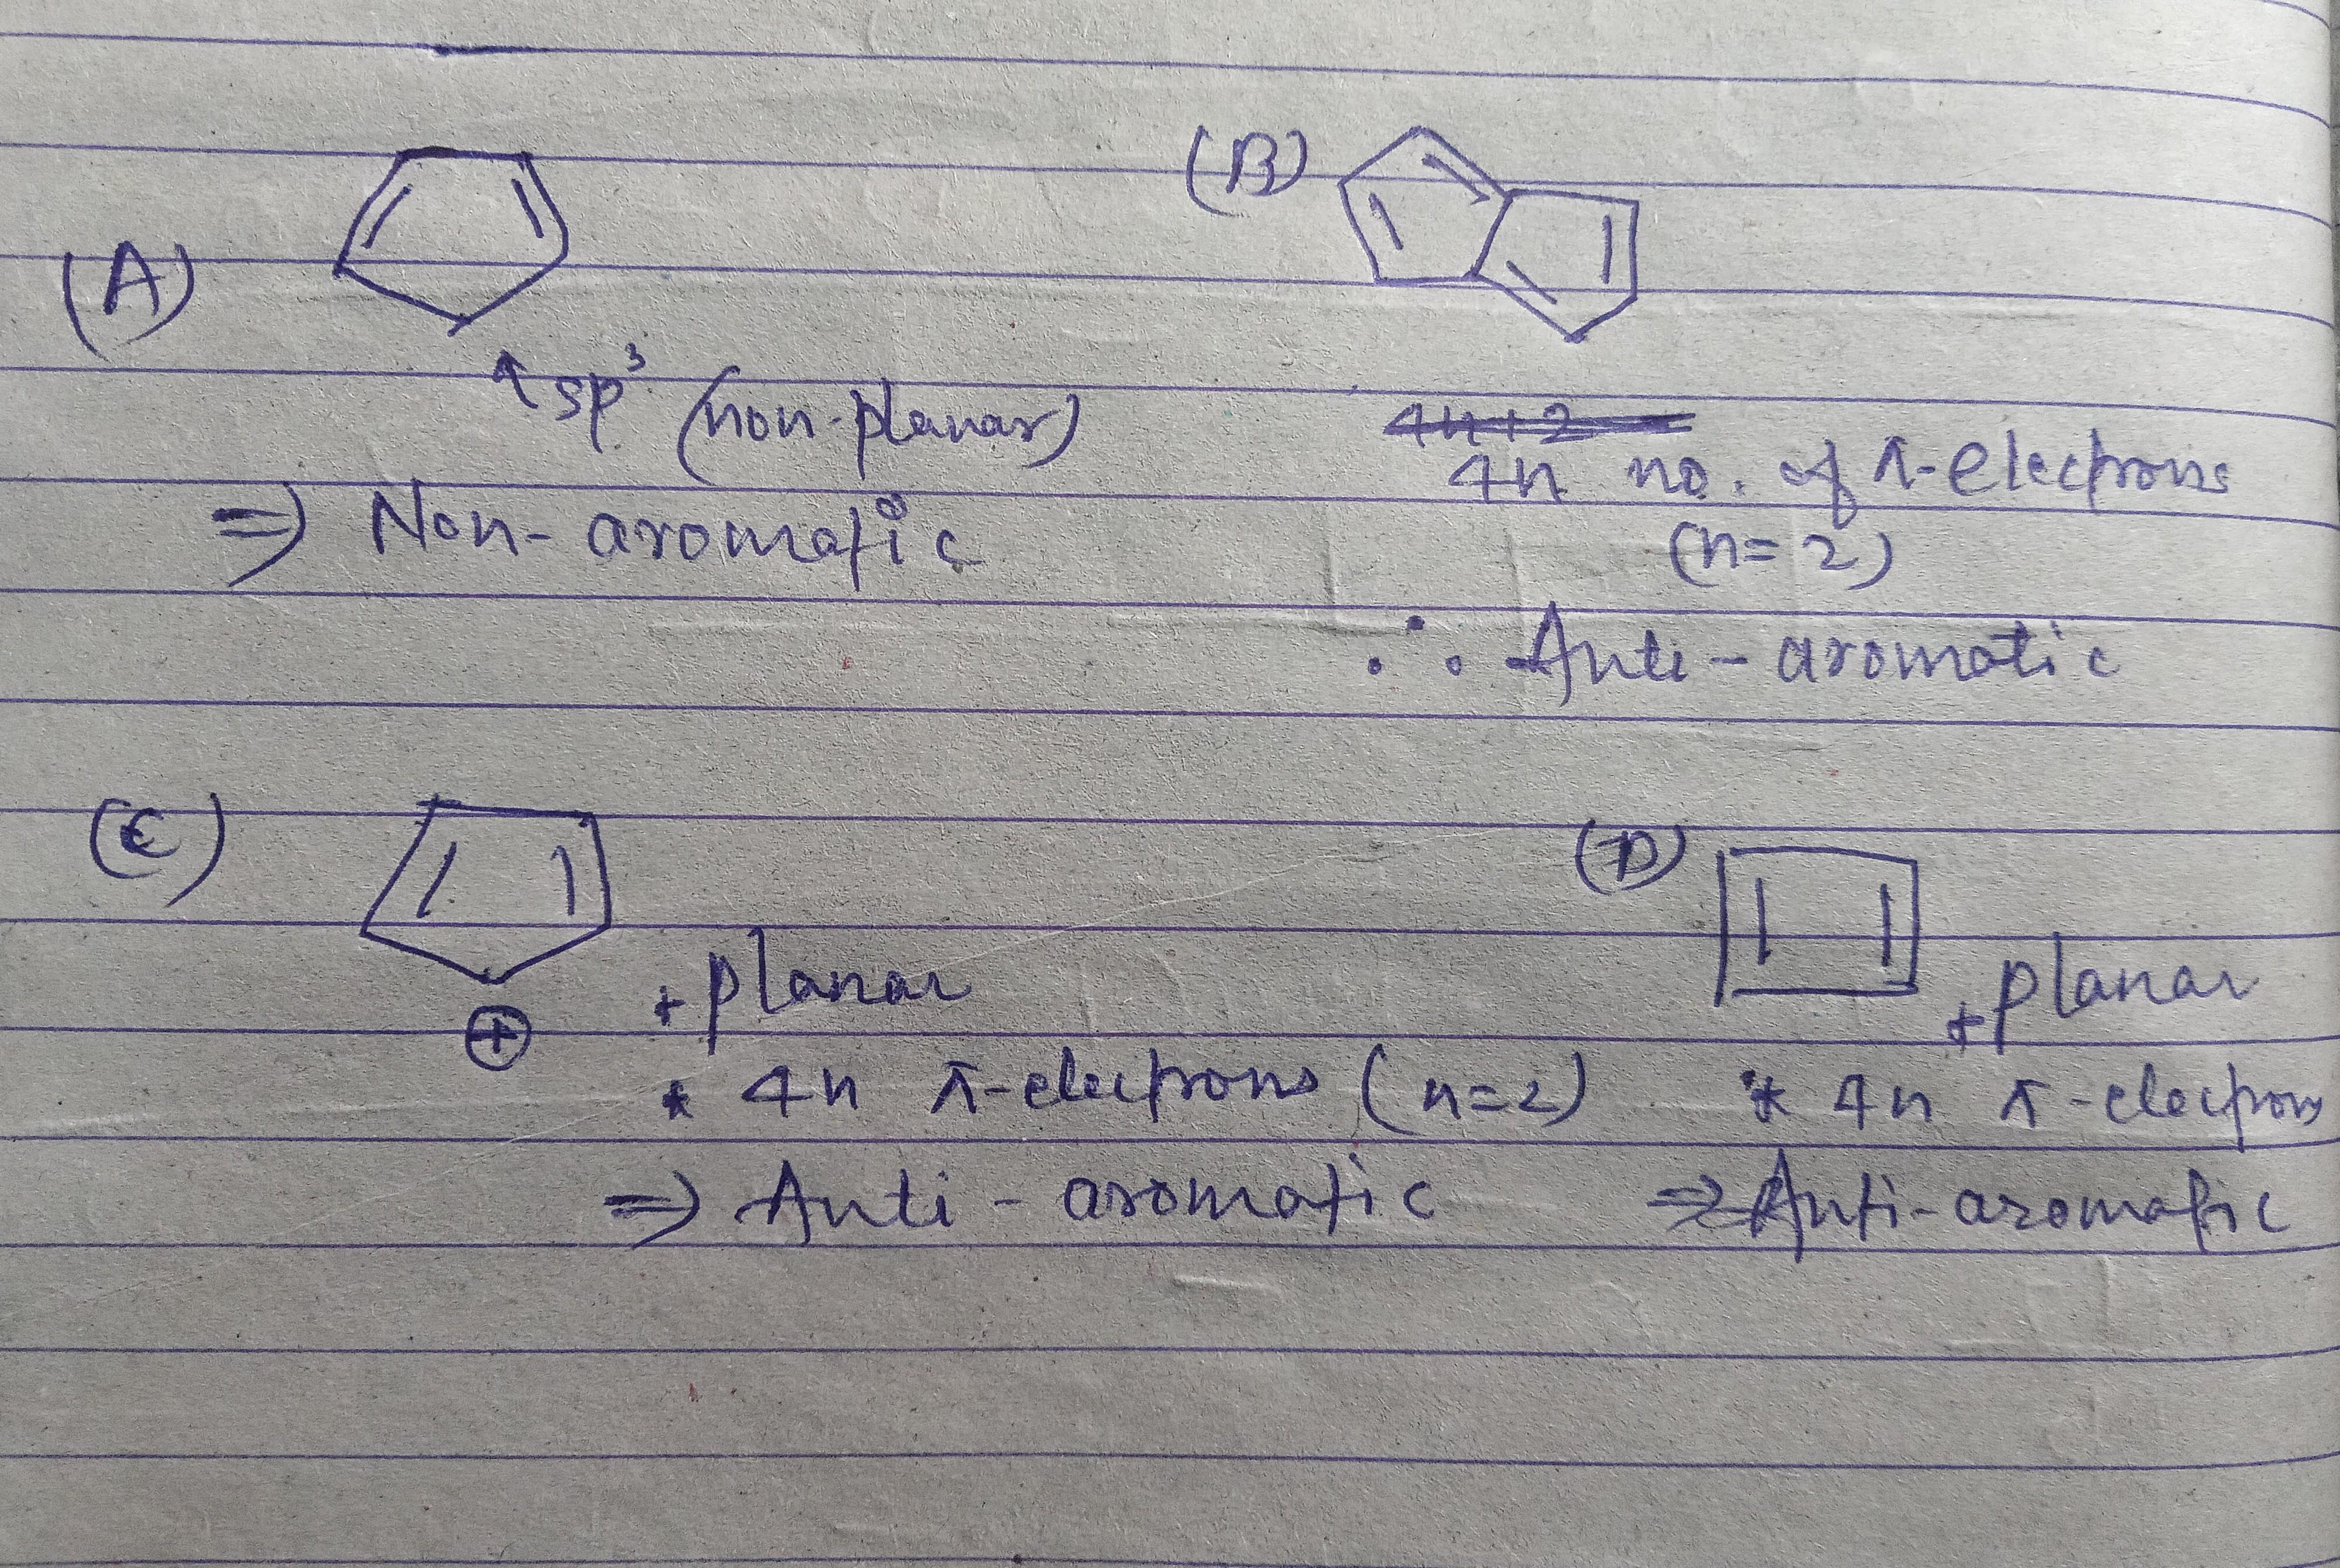 (A)
↑ sp³ (non-planar)
⇒ Non-aromatic
(B)
4n+2
4n no. of π-electrons
(n=2)
∴ Anti-aromatic
(C)
⊕
* planar
* 4n π-electrons (n=2)
⇒ Anti-aromatic
(D)
* planar
* 4n π-electrons
⇒ Anti-aromatic